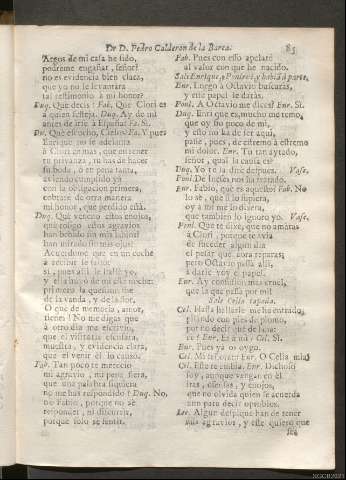 De D. Pedro Calderon de la Barca. 85
Argos de mi casa he sido,
podreme engañar, señor?
no es evidencia bien clara,
que yo no le levantàra
tal testimonio à mi honor?
Duq. Que decis? Fab. Que Clori es
à quien festeja. Duq. Ay de mi
antes de irse à España? Fa. Si.
Du. Què escucho, Cielos! Y pues
Enrique no se adelanta
à Clori en mas, que en tener
tu privanza, tu has de hacer
su boda, ò en pena tanta,
aviendo cumplido yà
con la obligacion primera,
cobrarè de otra manera
mi honor, que perdido està.
Duq. Què veneno estos enojos,
que rosigo estos agravios
han bebido sin mis labios?
han mirado sin mis ojos?
Acuerdome que en un coche
à recibir se
si, pues alli le hallè yo,
y ella luego de mi essa noche:
primero la question fue
de la vanda, y de la flor,
O que de memoria, amor,
tienes! No me digas que
à otro dia me escrivio,
que el visitarla escusàra,
muestra, y evidencia clara,
que el venir èl lo causò.
Fab. Tan poco te mereciò
mi agravio, mi pena fiera,
que una palabra siquiera
no me has respondido? Duq. No,
no Fabio, porque no sè
responder, ni discurrir,
porque solo sè sentir.
Fab. Pues con esso apelarè
al valor con que he nacido.
Sale Enrique, y Ponlevì, y habla à parte.
Enr. Luego à Octavio buscaràs,
y este papel le daràs.
Ponl. A Octavio me dices? Enr. Si.
Duq. Enrique es, mucho me temo,
que oy sin poco de mi,
y esto no ha de ser aqui,
passe, pues, de estremo à estremo
mi dolor. Enr. Tu tan ayrado,
señor, qual la causa es?
Duq. Yo te la dirè despues. Vase.
Ponl. De bofes nos ha tratado.
Enr. Fabio, què es aquesto? Fab. No
lo sè, que si lo supiera,
oy à mi me lo dixera,
que tambien lo ignoro yo. Vase.
Ponl. Que te dixe, que no amàras
à Clori, porque te avia
de suceder algun dia
el pesar que aora reparas;
pero Octavio passa alli,
à darle voy el papel.
Enr. Ay confusion mas cruel,
que la que passa por mi!
Sale Celia tapada.
Cel. Hasta hallarle me he entrado
pisando con pies de plomo,
por no decir que de lana:
ce? Enr. Es à mi? Cel. Si.
Enr. Pues yà os oygo.
Cel. Mi señora: Enr. O Celia mia!
Cel. Este te embia. Enr. Dichoso
soy, aunque vengan en èl
iras, ofensas, y enojos,
que no olvida quien se acuerda
aun para decir oprobios.
Lee. Algun desquite han de tener
mis agravios, y este quiero que
sea